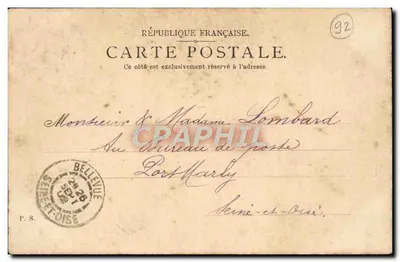 RÉPUBLIQUE FRANÇAISE.
92
CARTE POSTALE.
Ce côté est exclusivement réservé à l'adresse.
Monsieur & Madame Lombard
Au Bureau de poste
CPARAPHIL
Port Marly
Seine-et-Oise
BELLEVUE
26
SEINE-ET-OISE
P. S.